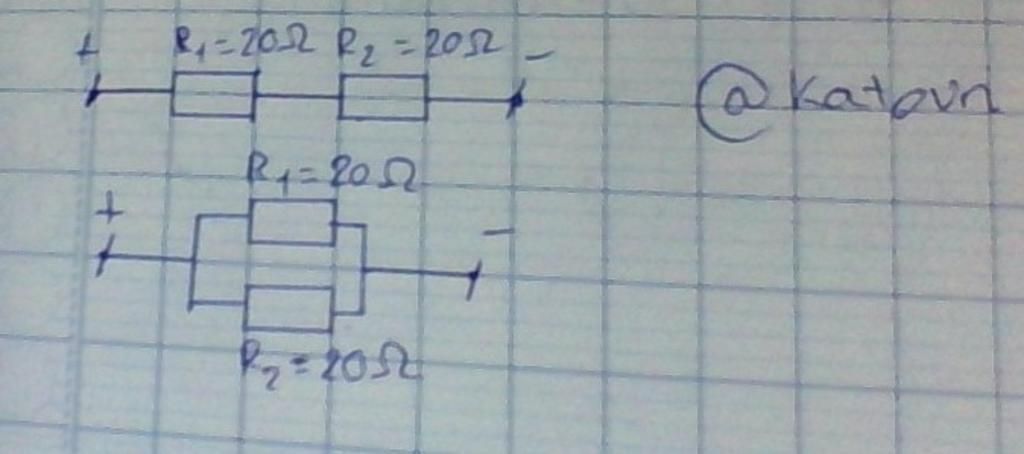 + R₁=20Ω R₂=20Ω -
@Katovn
R₁=20Ω
+ -
R₂=20Ω